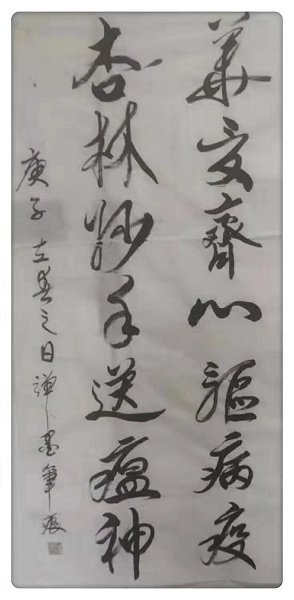 華夏齊心驅病疫
杏林妙手送瘟神
庚子立春之日禪墨筆痕